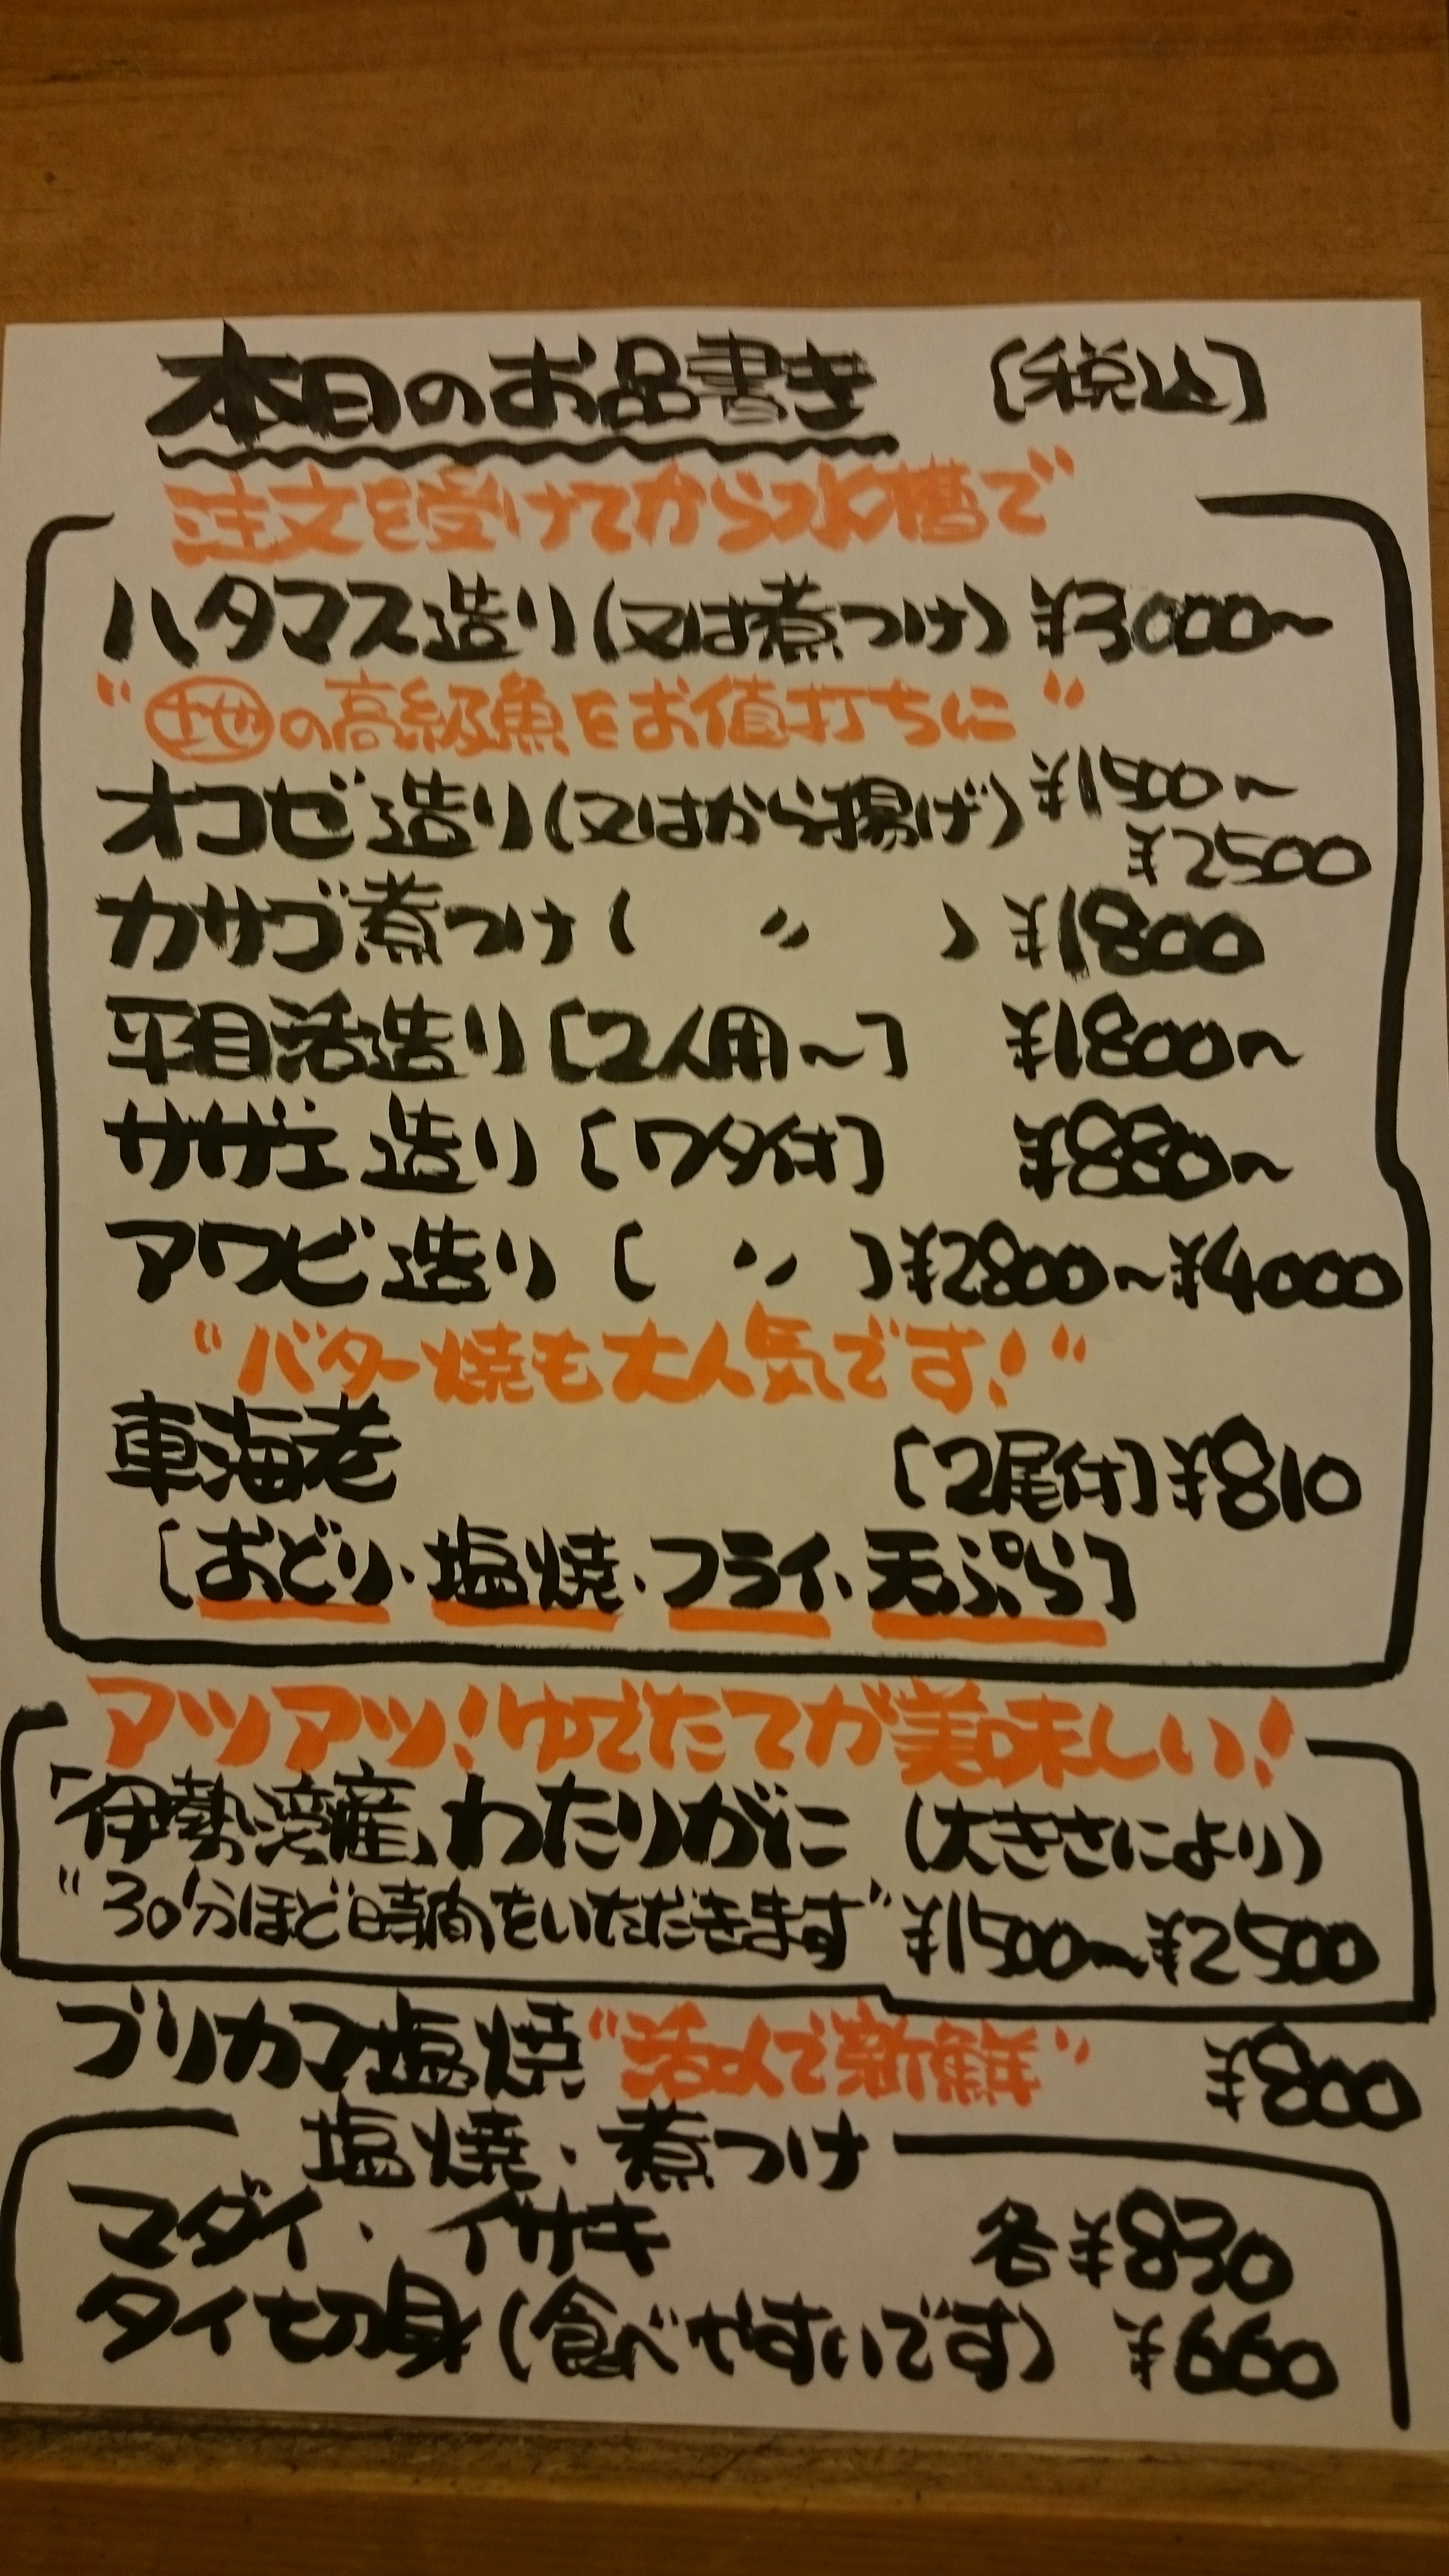 本日のお品書き [税込]
注文を受けてから水槽で"
ハタマス造り(又は煮つけ) ¥3000〜
"地の高級魚をお値打ちに"
オコゼ造り(又はから揚げ) ¥1500〜
¥2500
カサゴ煮つけ( 〃 ) ¥1800
平目活造り[2人用〜] ¥1800〜
サザエ造り[ワタ付] ¥880〜
アワビ造り[ 〃 ]¥2800〜¥4000
"バター焼も大人気です!"
車海老 [2尾付]¥810
[おどり、塩焼、フライ、天ぷら]
アツアツ!ゆでたてが美味しい!
「伊勢湾産」わたりがに (大きさにより)
"30分ほど時間をいただきます"¥1500〜¥2500
ブリカマ塩焼"活〆で新鮮" ¥800
塩焼・煮つけ
マダイ・イサキ 各¥850
タイ切身(食べやすいです) ¥990